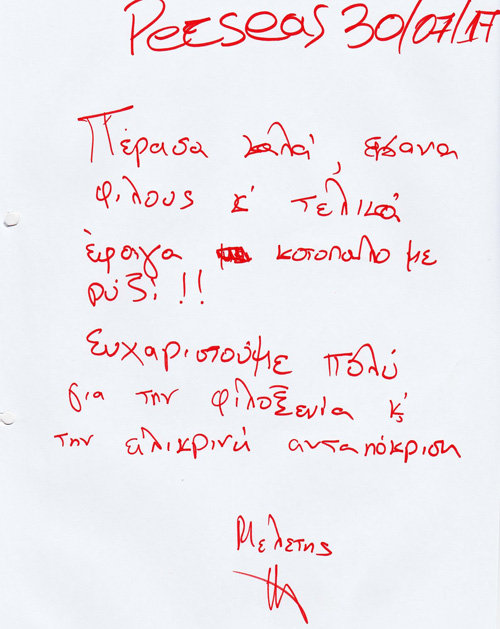 Perseas 30/07/17
Πέρασα καλά, έκανα
φίλους κ' τελικά
έφαγα κοτόπουλο με
ρύζι!!
Ευχαριστούμε πολύ
για την φιλοξενία κ'
την ειλικρινή ανταπόκριση
Μελέτης